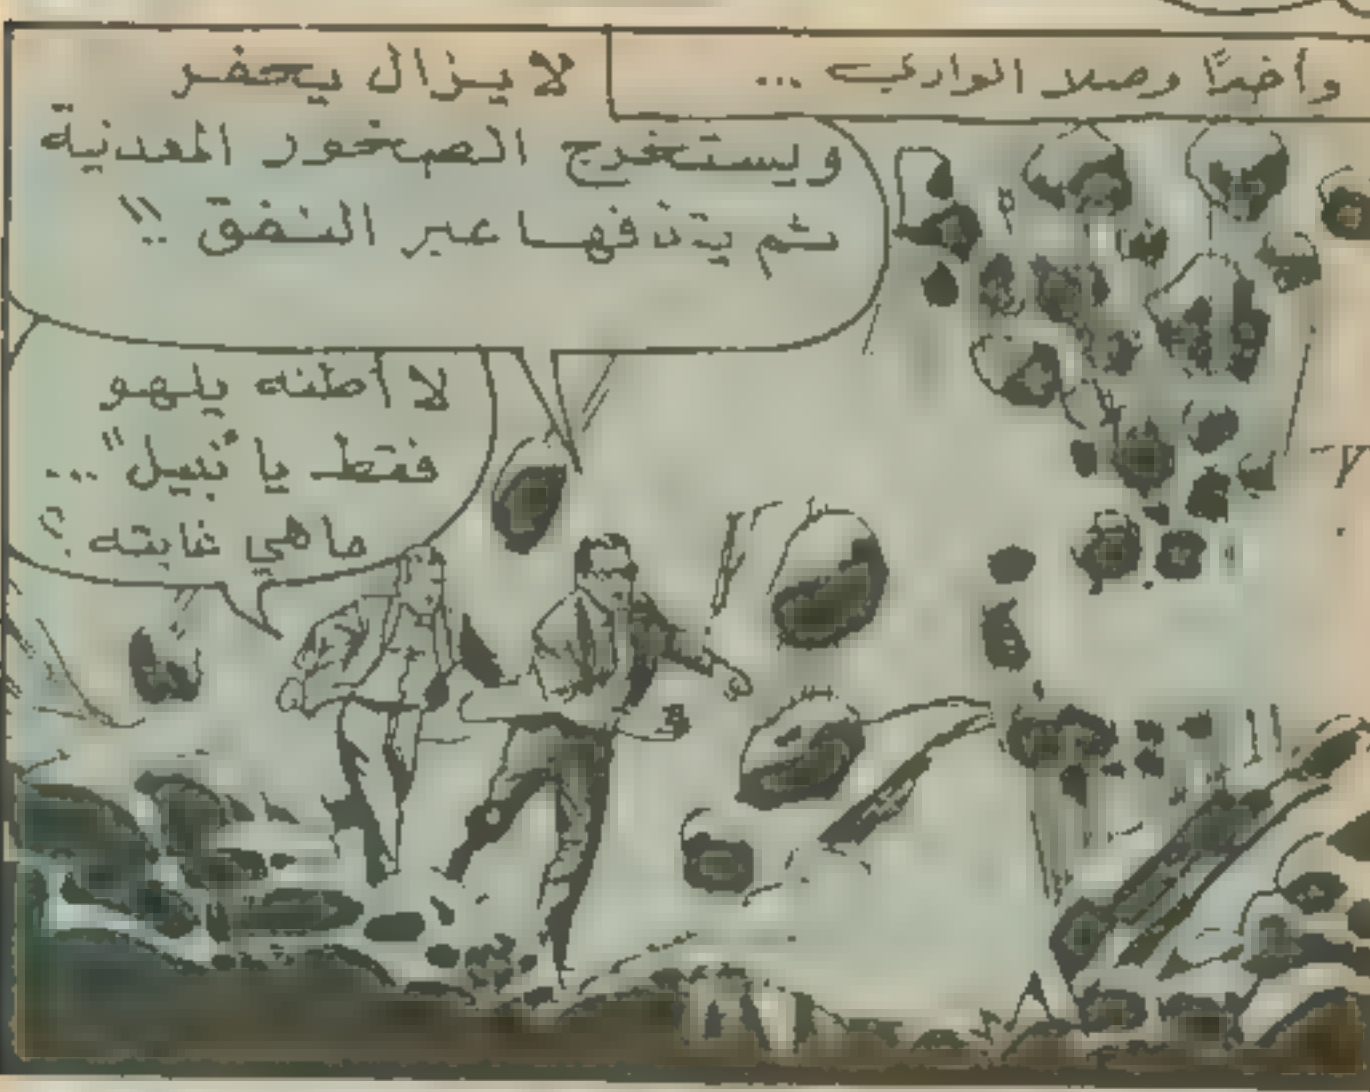 وأخيرًا وصلا الوادي ...
لا يزال يحفر
ويستخرج الصخور المعدنية
ثم يقذفها عبر النفق !!
لا أظنه يلهو
فقط يا "نبيل" ...
ما هي غايته ؟